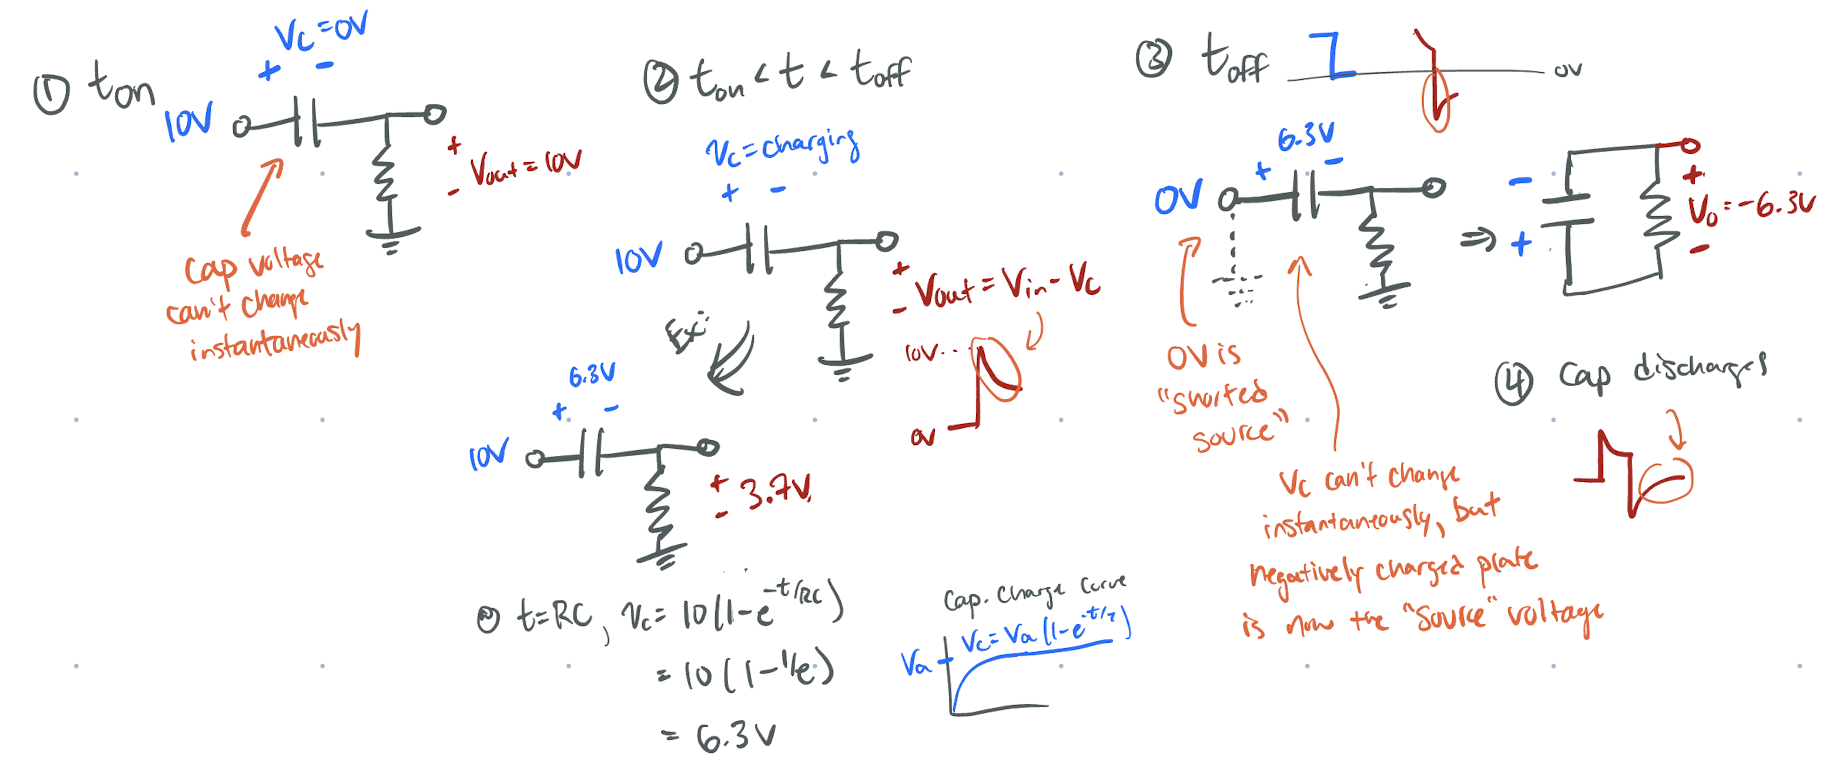 ① ton
Vc=0V
+ -
10V
+
Vout=10V
-
Cap voltage
can't change
instantaneously
② ton < t < toff
Vc=charging
+ -
10V
+
Vout = Vin - Vc
-
10V...
0V
Ex:
6.3V
+ -
10V
+
3.7V
-
@ t=RC, Vc = 10(1-e^-t/RC)
= 10(1-1/e)
= 6.3V
Cap. Charge Curve
Vc=Va(1-e^-t/τ)
Va
③ toff
0V
6.3V
+ -
0V
⇒
-
+
+
Vo=-6.3V
-
0V is
"shorted
source"
Vc can't change
instantaneously, but
negatively charged plate
is now the "source" voltage
④ Cap discharges